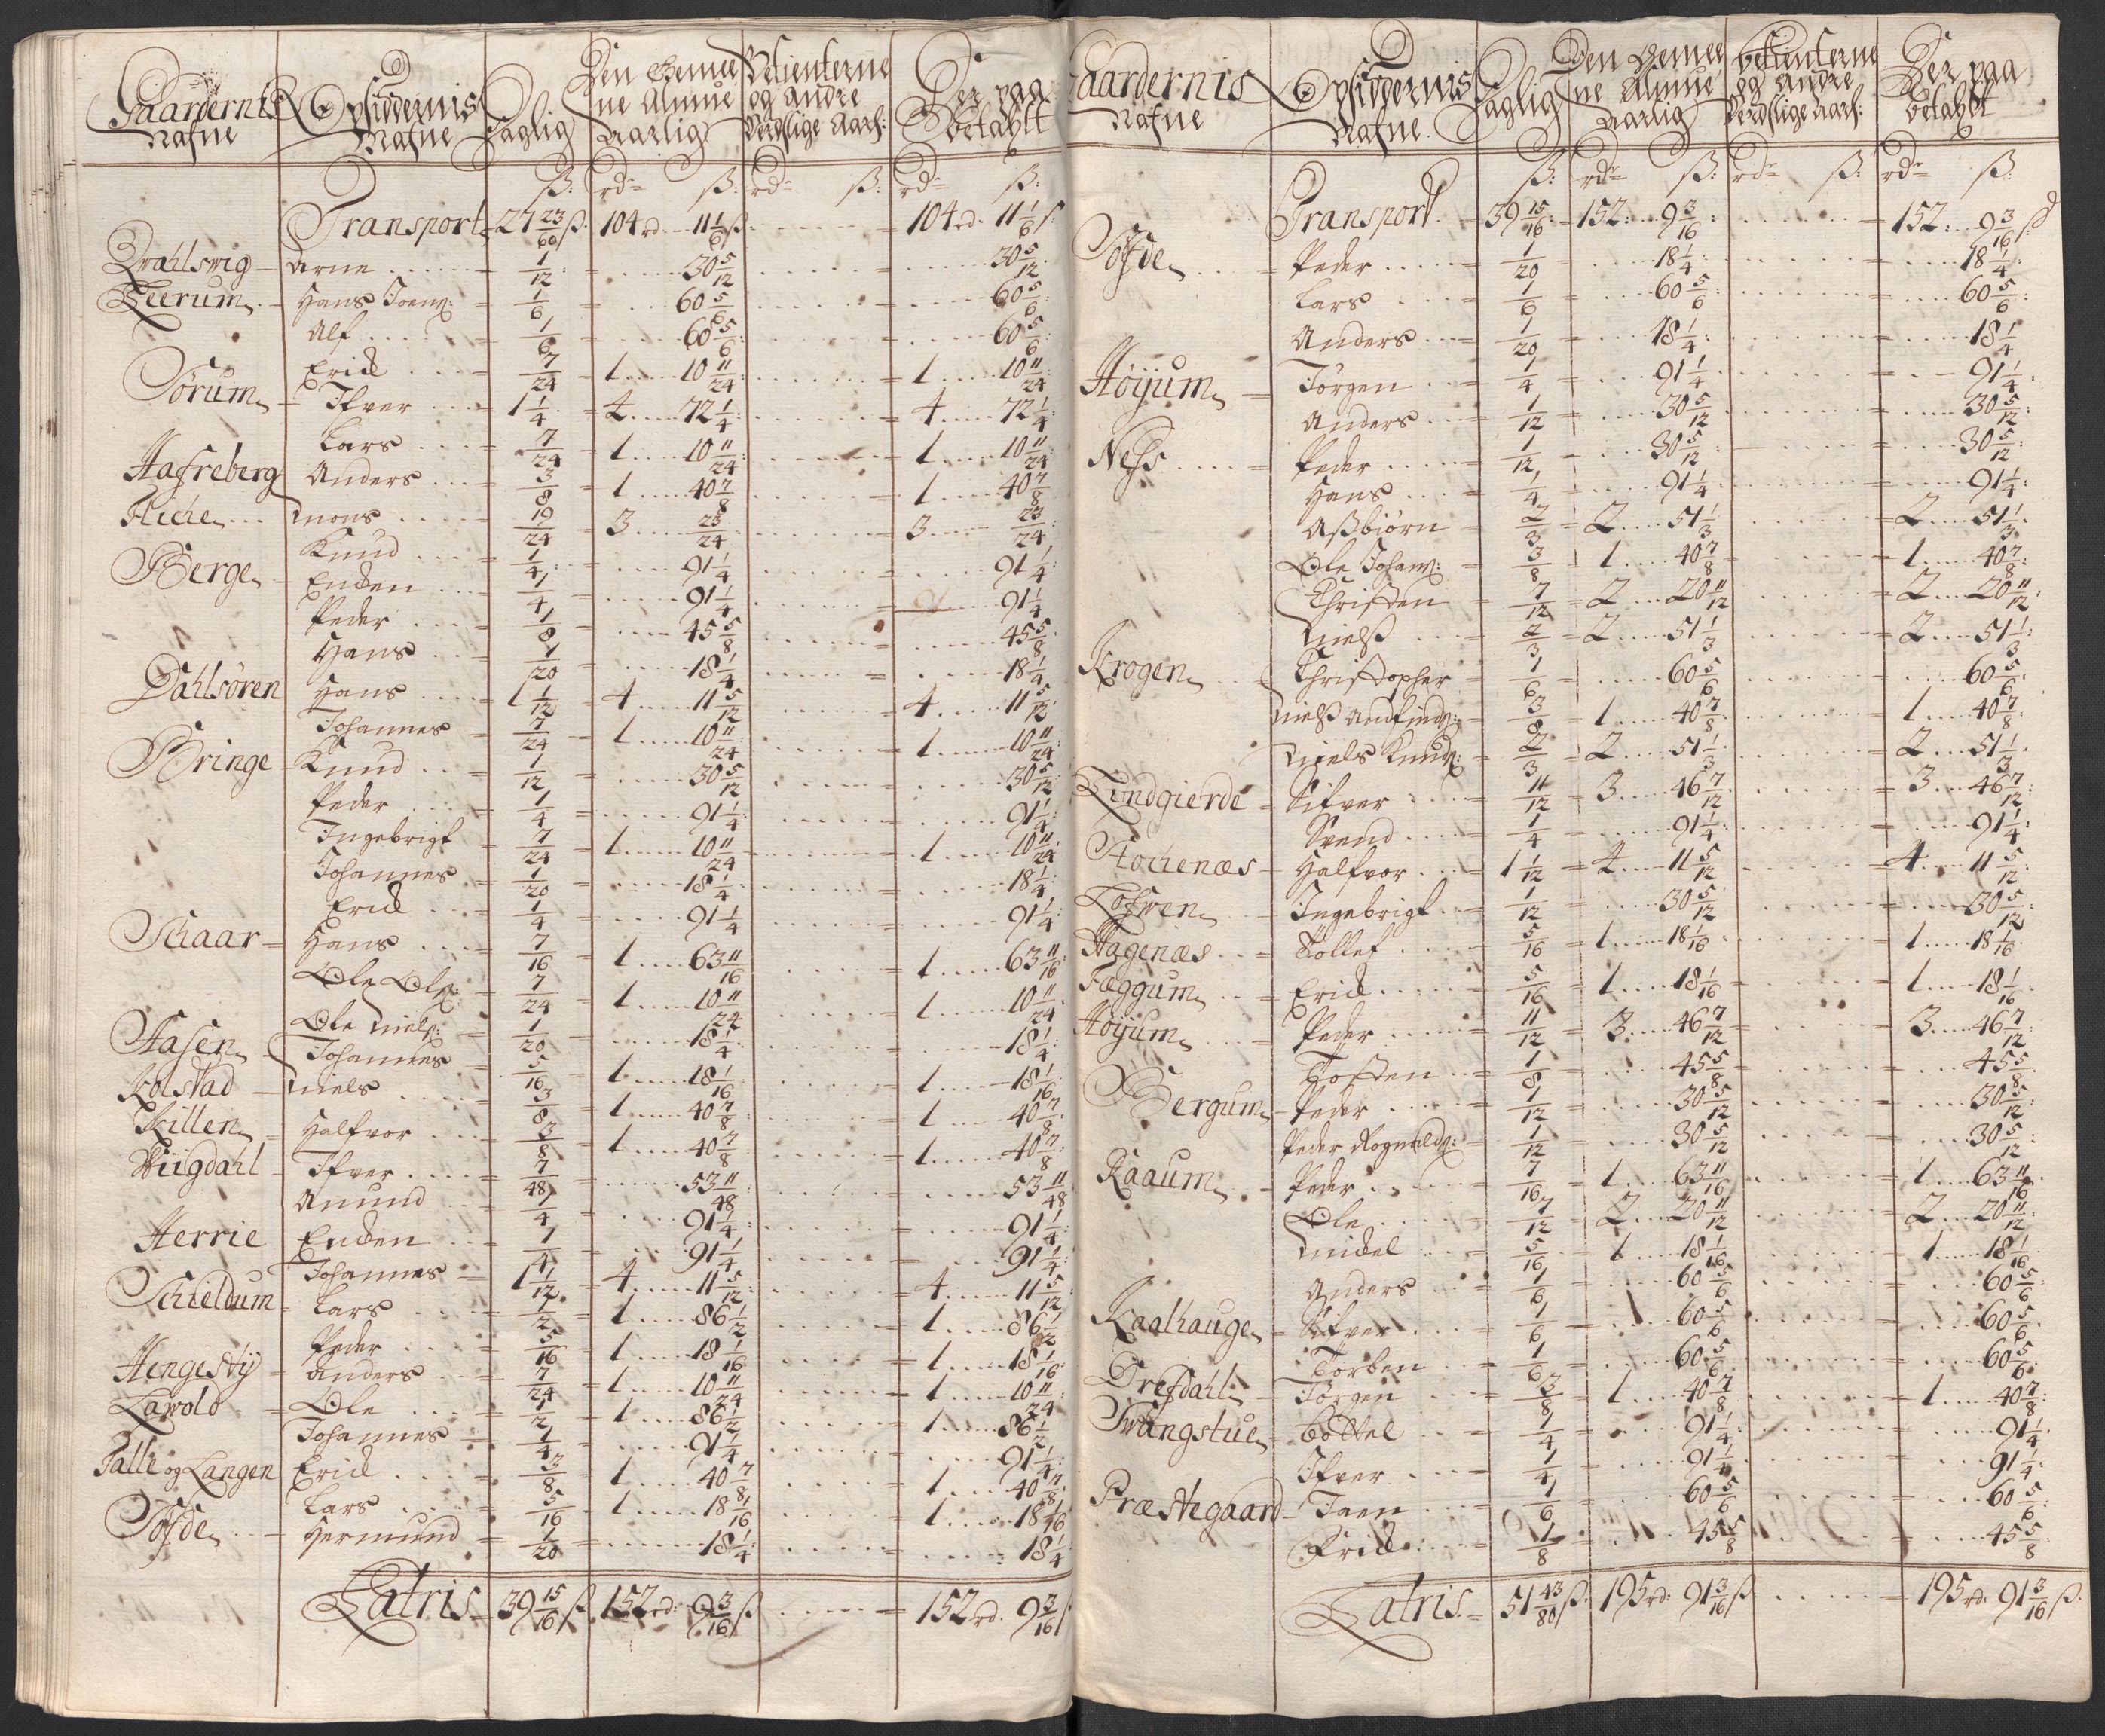 Gaardernis Nafne | Opsiddernis Nafne | Daglig | Den Gemeene Almue Aarlig | Betienterne og andre Verdslige Aarl: | Der paa betahlt
ß: | rdr ß: | rdr ß: | rdr ß:
Transport 27 23/60 ß. | 104 rd 11 1/6 ß | 104 rd. 11 1/6 ß:
Qvahlsvig Arne 1/12 | 30 5/12 | 30 5/12
Leerum Hans Joens: 1/6 | 60 5/6 | 60 5/6
Alf 1/6 | 60 5/6 | 60 5/6
Sørum Erick 7/24 | 1 10 11/24 | 1 10 11/24
Ifver 1 1/4 | 4 72 1/4 | 4 72 1/4
Lars 7/24 | 1 10 11/24 | 1 10 11/24
Hafreberg Anders 3/8 | 1 40 7/8 | 1 40 7/8
Fliche Mons 19/24 | 3 23/24 | 3 23/24
Berge Knud 1/4 | 91 1/4 | 91 1/4
Enden 1/4 | 91 1/4 | 91 1/4
Peder 1/8 | 45 5/8 | 45 5/8
Hans 1/20 | 18 1/4 | 18 1/4
Dahlsøren Hans 1 1/12 | 4 11 5/12 | 4 11 5/12
Johannes 7/24 | 1 10 11/24 | 1 10 11/24
Bringe Knud 1/12 | 30 5/12 | 30 5/12
Peder 1/4 | 91 1/4 | 91 1/4
Ingebrigt 7/24 | 1 10 11/24 | 1 10 11/24
Johannes 1/20 | 18 1/4 | 18 1/4
Erick 1/4 | 91 1/4 | 91 1/4
Schaar Hans 7/16 | 1 63 11/16 | 1 63 11/16
Ole Ols: 7/24 | 1 10 11/24 | 1 10 11/24
Ole Niels: 1/20 | 18 1/4 | 18 1/4
Aasen Johannes 5/16 | 1 18 1/16 | 1 18 1/16
Kolstad Niels 3/8 | 1 40 7/8 | 1 40 7/8
Killen Halfvor 3/8 | 1 40 7/8 | 1 40 7/8
Wiigdahl Ifver 7/48 | 53 11/48 | 53 11/48
Amund 1/4 | 91 1/4 | 91 1/4
Herrie Enden 1/4 | 91 1/4 | 91 1/4
Johannes 1 1/12 | 4 11 5/12 | 4 11 5/12
Schieldum Lars 1/2 | 1 86 1/2 | 1 86 1/2
Peder 5/16 | 1 18 1/16 | 1 18 1/16
Hengestÿ Anders 7/24 | 1 10 11/24 | 1 10 11/24
Lawold Ole 1/2 | 1 86 1/2 | 1 86 1/2
Johannes 1/4 | 91 1/4 | 91 1/4
Talle og Langen Erick 3/8 | 1 40 7/8 | 1 40 7/8
Lars 5/16 | 1 18 1/16 | 1 18 1/16
Søfde Hermund 1/20 | 18 1/4 | 18 1/4
Latris 39 15/16 ß | 152 rd: 9 3/16 ß | 152 rd. 9 3/16 ß
Gaardernis Nafne | Opsiddernis Nafne. | Daglig | Den Gemeene Almue Aarlig | betienterne og andre Verdslige Aarl: | Der paa betahlt
ß: | rdr ß: | rdr ß: | rdr ß:
Transport 39 15/16 | 152: 9 3/16 | 152: 9 3/16 ß
Søfde Peder 1/20 | 18 1/4 | 18 1/4
Lars 1/6 | 60 5/6 | 60 5/6
Anders 1/20 | 18 1/4 | 18 1/4
Høÿum Jørgen 1/4 | 91 1/4 | 91 1/4
Anders 1/12 | 30 5/12 | 30 5/12
Nehs Peder 1/12 | 30 5/12 | 30 5/12
Hans 1/4 | 91 1/4 | 91 1/4
Aßbiørn 2/3 | 2 51 1/3 | 2 51 1/3
Ole Johans: 3/8 | 1 40 7/8 | 1 40 7/8
Christen 7/12 | 2 20 11/12 | 2 20 11/12
Nielß 2/3 | 2 51 1/3 | 2 51 1/3
Krogen Christopher 1/6 | 60 5/6 | 60 5/6
Nielß Andfinds: 3/8 | 1 40 7/8 | 1 40 7/8
Niels Knuds: 2/3 | 2 51 1/3 | 2 51 1/3
Lundgierde Sifver 11/12 | 3 46 7/12 | 3 46 7/12
Svend 1/4 | 91 1/4 | 91 1/4
Hochenæs Halfvor 1 1/12 | 4 11 5/12 | 4 11 5/12
Lofwen Ingebrigt 1/12 | 30 5/12 | 30 5/12
Hagenæs Tollef 5/16 | 1 18 1/16 | 1 18 1/16
Fæggum Erick 5/16 | 1 18 1/16 | 1 18 1/16
Høÿum Peder 11/12 | 3 46 7/12 | 3 46 7/12
Tosten 1/8 | 45 5/8 | 45 5/8
Bergum Peder 1/12 | 30 5/12 | 30 5/12
Peder Rognalds: 1/12 | 30 5/12 | 30 5/12
Raaum Peder 7/16 | 1 63 11/16 | 1 63 11/16
Ole 7/12 | 2 20 11/12 | 2 20 11/12
Mickel 5/16 | 1 18 1/16 | 1 18 1/16
Anders 1/6 | 60 5/6 | 60 5/6
Kaalhauge Sifver 1/6 | 60 5/6 | 60 5/6
Torben 1/6 | 60 5/6 | 60 5/6
Drefdahl Jørgen 3/8 | 1 40 7/8 | 1 40 7/8
Swangstue Bottel 1/4 | 91 1/4 | 91 1/4
Ifver 1/4 | 91 1/4 | 91 1/4
Præstegaard Jaen 1/6 | 60 5/6 | 60 5/6
Erick 1/8 | 45 5/8 | 45 5/8
Latris 51 43/80 ß. | 195 rd: 91 3/16 ß. | 195 rd. 91 3/16 ß.